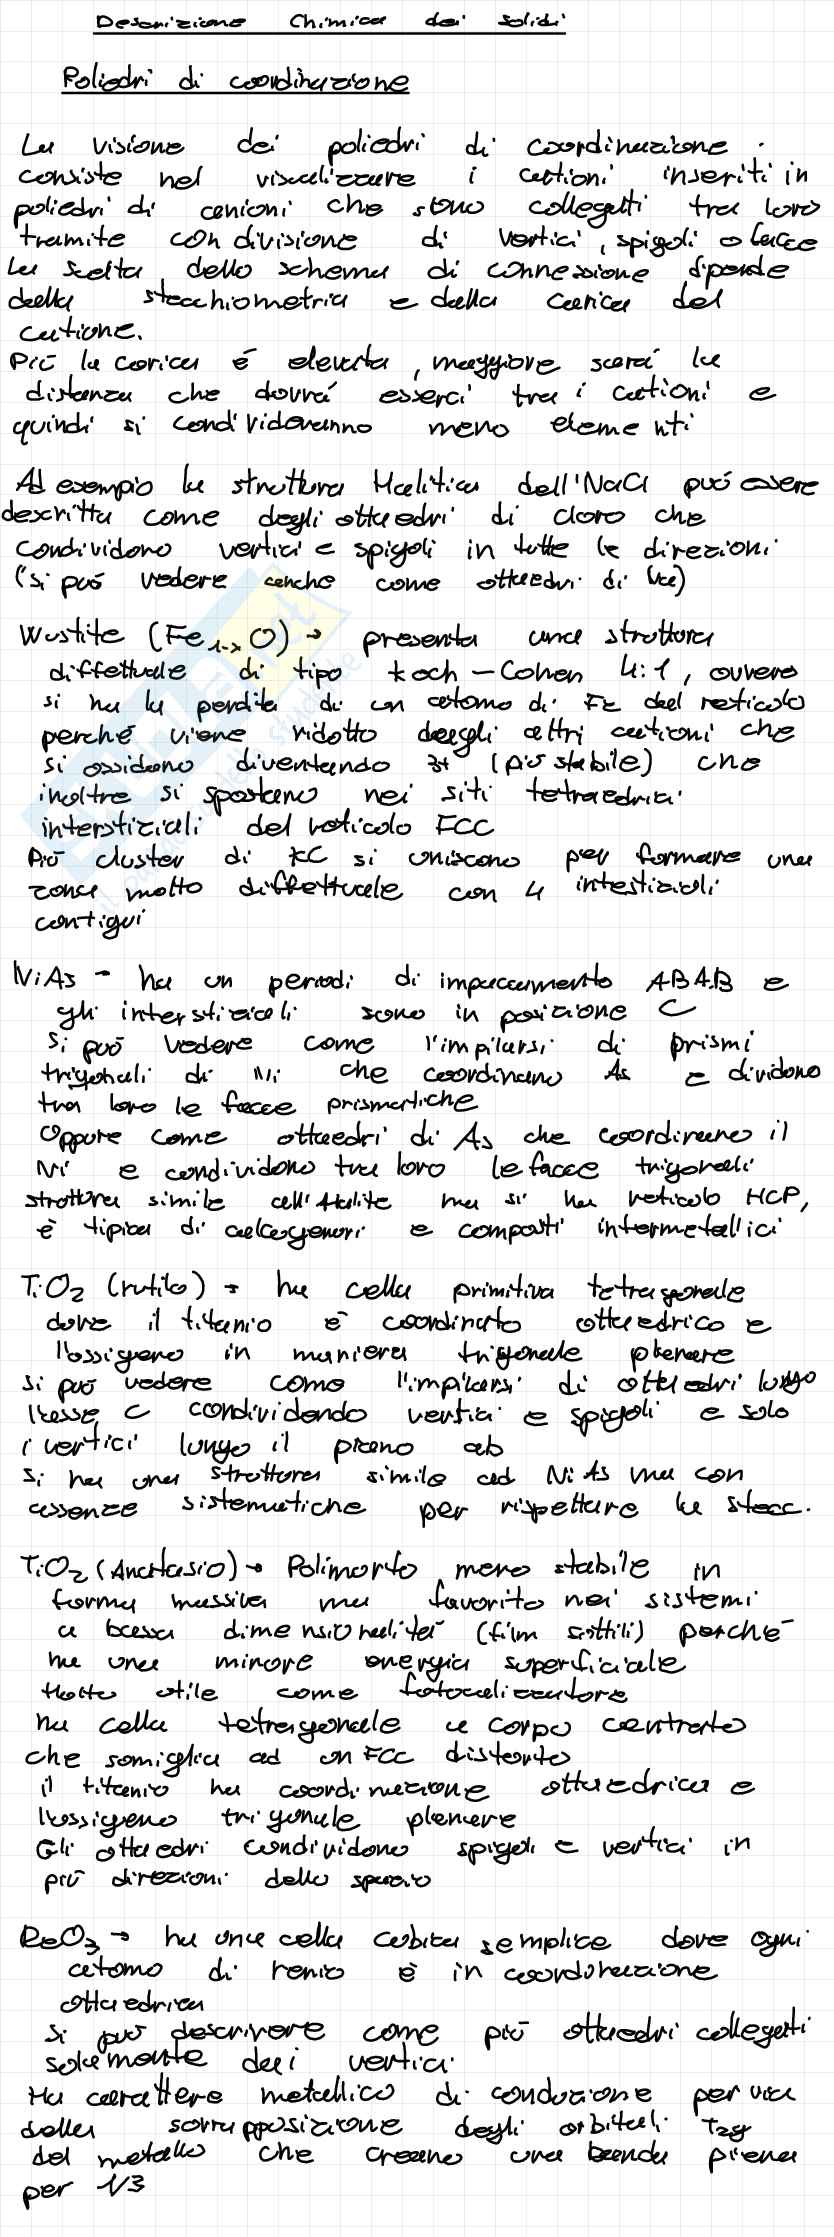 Descrizione Chimica dei solidi
Poliedri di coordinazione
La visione dei poliedri di coordinazione
consiste nel visualizzare i cationi inseriti in
poliedri di anioni che sono collegati tra loro
tramite condivisione di vertici, spigoli o facce
La scelta dello schema di connessione dipende
dalla stechiometria e dalla carica del
catione.
Più la carica é elevata, maggiore sará la
distanza che dovrá esserci tra i cationi e
quindi si condivideranno meno elementi
Ad esempio la struttura Halitica dell'NaCl puó essere
descritta come degli ottaedri di cloro che
condividono vertici e spigoli in tutte le direzioni
(si puó vedere anche come ottaedri di Na)
Wustite (Fe1-xO) → presenta una struttura
diffettuale di tipo koch-Cohen 4:1, ovvero
si ha la perdita di un atomo di Fe dal reticolo
perché viene ridotto dagli altri cationi che
si ossidano diventando 3+ (più stabile) che
inoltre si spostano nei siti tetraedrici
interstiziali del reticolo FCC
Più cluster di KC si uniscono per formare una
zona molto diffettuale con 4 intestiziali
contigui
NiAs → ha un periodi di impaccamento ABAB e
gli interstiziali sono in posizione C
Si puó vedere come l'impilarsi di prismi
trigonali di Ni che coordinano As e dividono
tra loro le facce prismatiche
Oppure come ottaedri di As che coordinano il
Ni e condividono tra loro le facce trigonali
struttura simile all'Halite ma si ha reticolo HCP,
é tipica di calcogenuri e composti intermetallici
TiO2 (rutilo) → ha cella primitiva tetragonale
dove il titanio é coordinato ottaedrico e
l'ossigeno in maniera trigonale planare
si puó vedere come l'impilarsi di ottaedri lungo
l'asse C condividendo vertici e spigoli e solo
i vertici lungo il piano ab
Si ha una struttura simile ad NiAs ma con
assenze sistematiche per rispettare la stecc.
TiO2 (Anatasio) → Polimorfo meno stabile in
forma massiva ma favorito nei sistemi
a bassa dimensionalitá (film sottili) perché
ha una minore energia superficiale
Molto utile come fotocalizzatore
ha cella tetragonale a corpo centrato
che somiglia ad un FCC distorto
il titanio ha coordinazione ottaedrica e
l'ossigeno trigonale planare
Gli ottaedri condividono spigoli e vertici in
più direzioni dello spazio
ReO3 → ha una cella cubica semplice dove ogni
atomo di renio é in coordonazione
ottaedrica
si può descrivere come più ottaedri collegati
solamente dai vertici
Ha carattere metallico di conduzione per via
della sovrapposizione degli orbitali T2g
del metallo che creano una banda piena
per 1/3